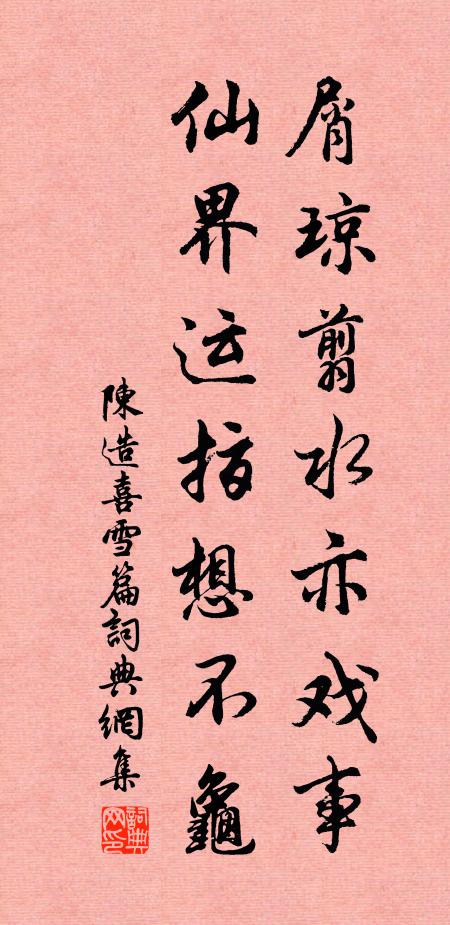 屑琼翦水亦戏事
仙界运指想不龜
陳造喜雪篇詞典網集
詞典网印